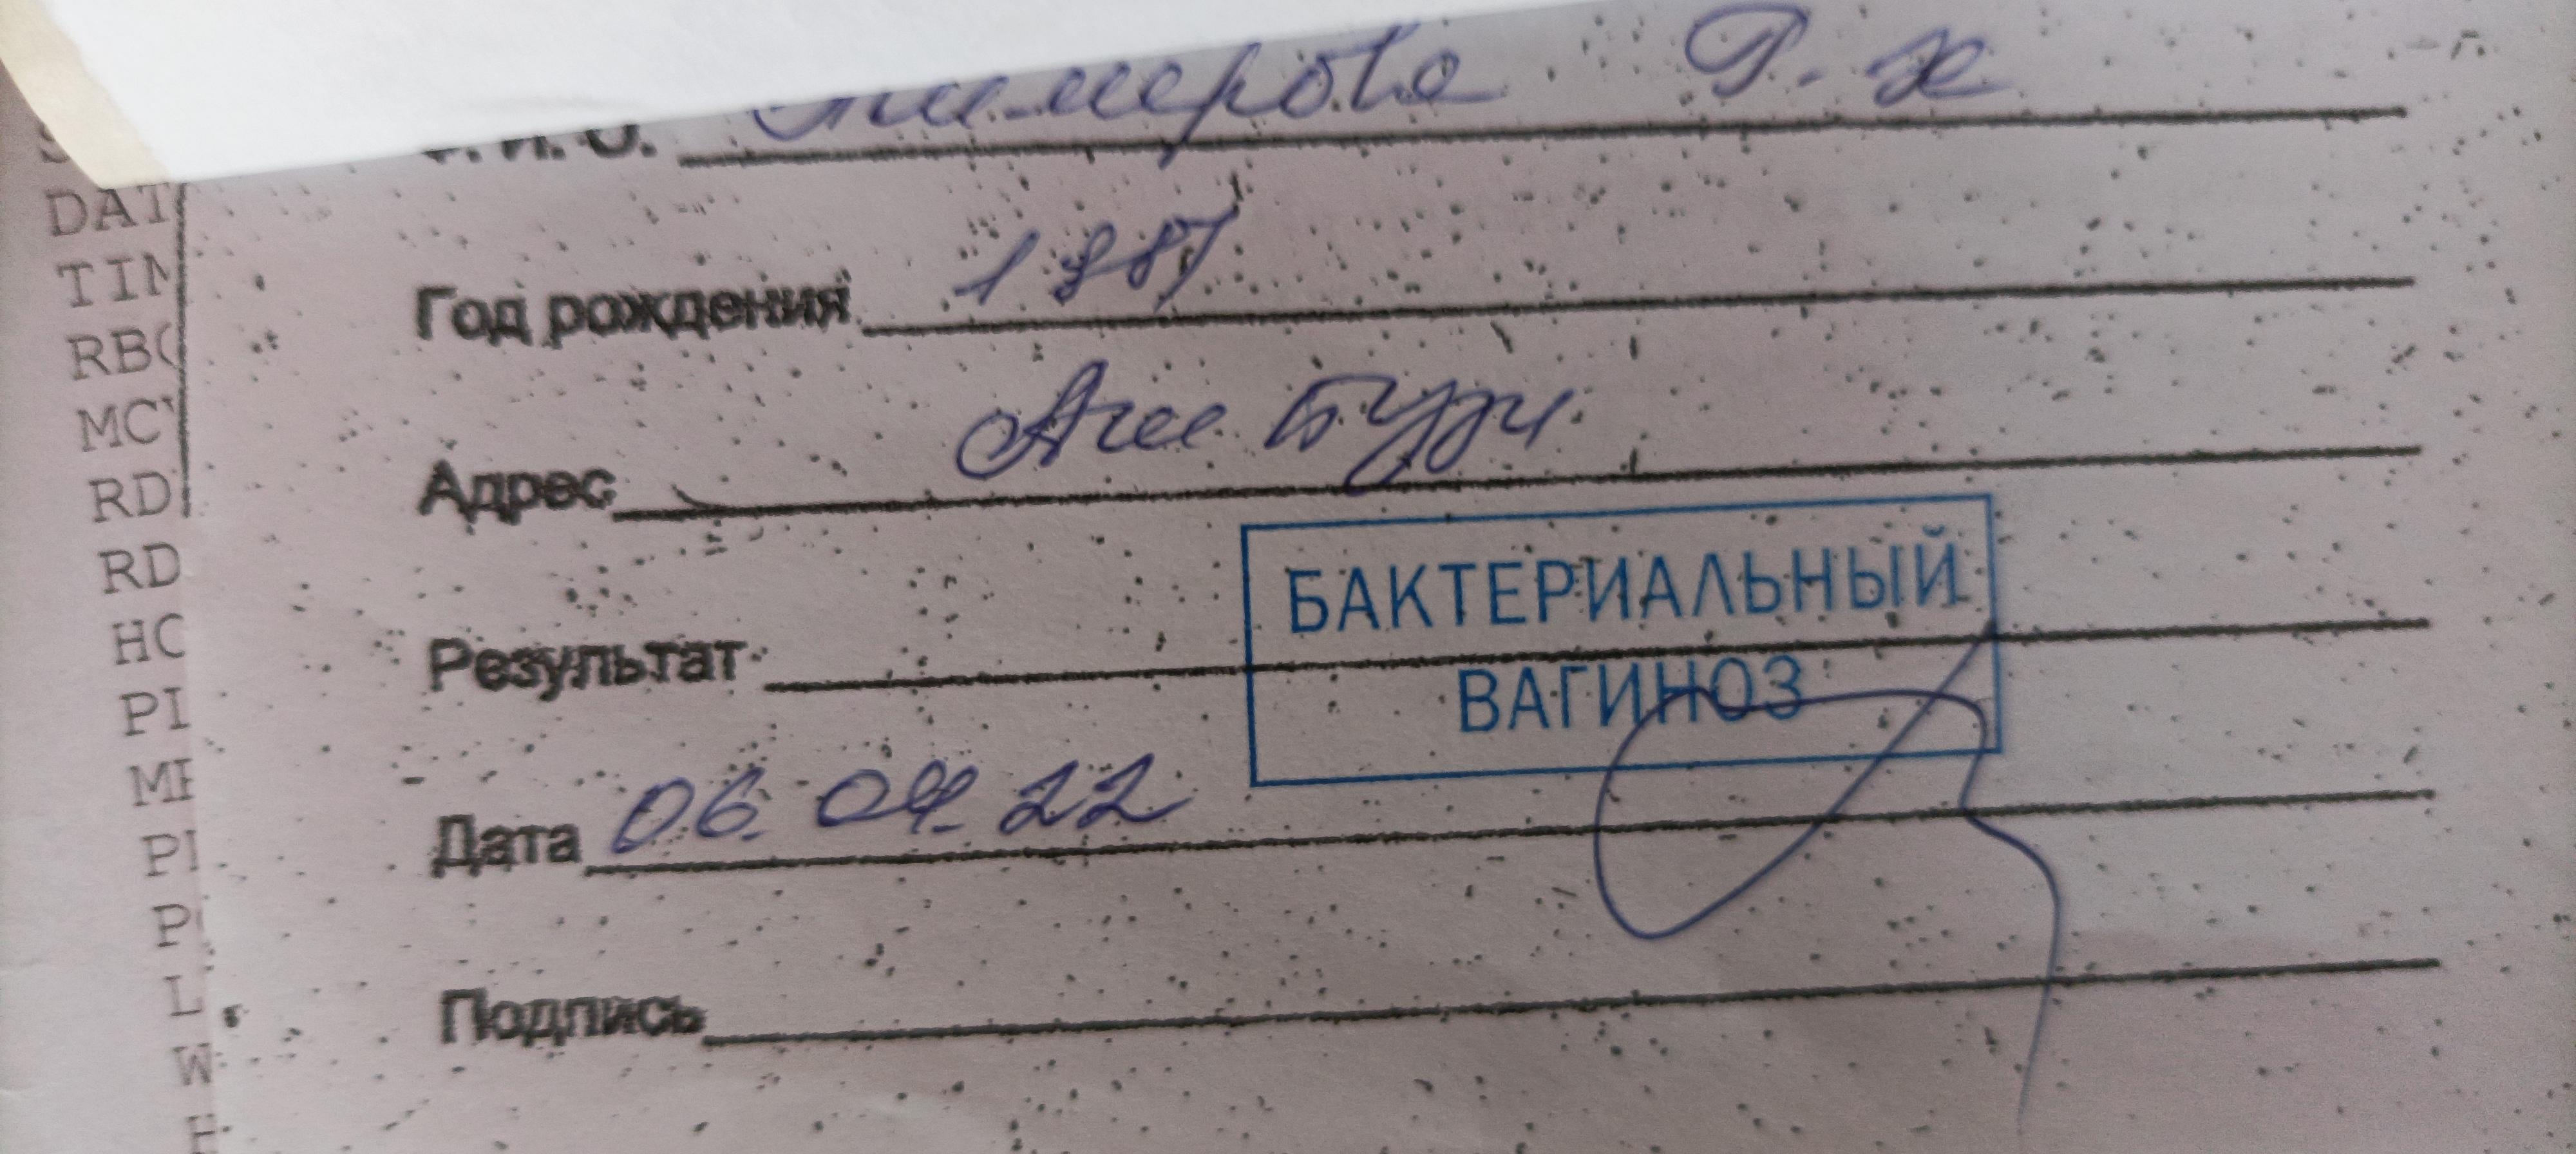 DAT
TIM
RBC
MC
RD
RD
HC
PI
P
L
W
Ф. И. О.
Год рождения 1987
Адрес
Результат БАКТЕРИАЛЬНЫЙ
ВАГИНОЗ
Дата 06. 04. 22
Подпись